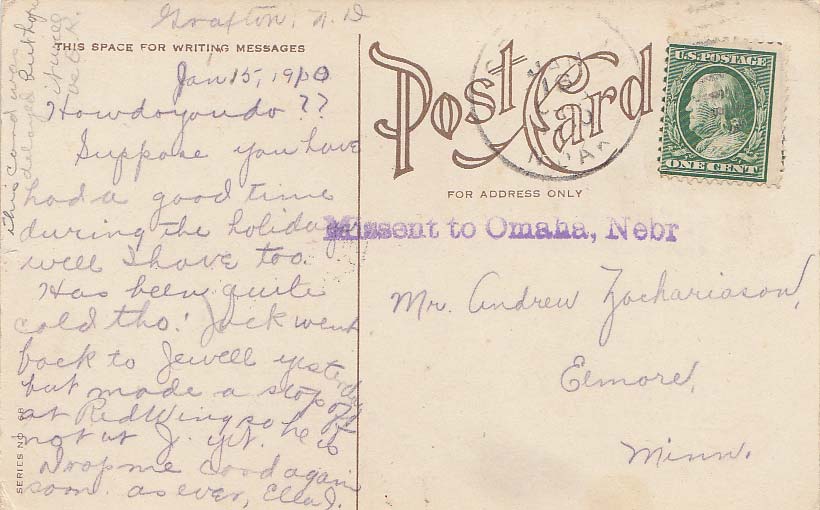 Grafton, N.D
THIS SPACE FOR WRITING MESSAGES
Jan 15, 1910
Howdoyoudo??
Suppose you have
had a good time
during the holidays
well I have too.
Has been quite
cold tho! Jack went
back to Jewell yesterday
but made a stop off
at Red Wing so he is
not at J. yet.
Drop me card again
soon. as ever, Ella J.
This card was
delayed but hope
it will
be O.K.
SERIES NO. 68
Post Card
N. DAK
U.S. POSTAGE
ONE CENT
FOR ADDRESS ONLY
Missent to Omaha, Nebr
Mr. Andrew Zachariason,
Elmore,
Minn.